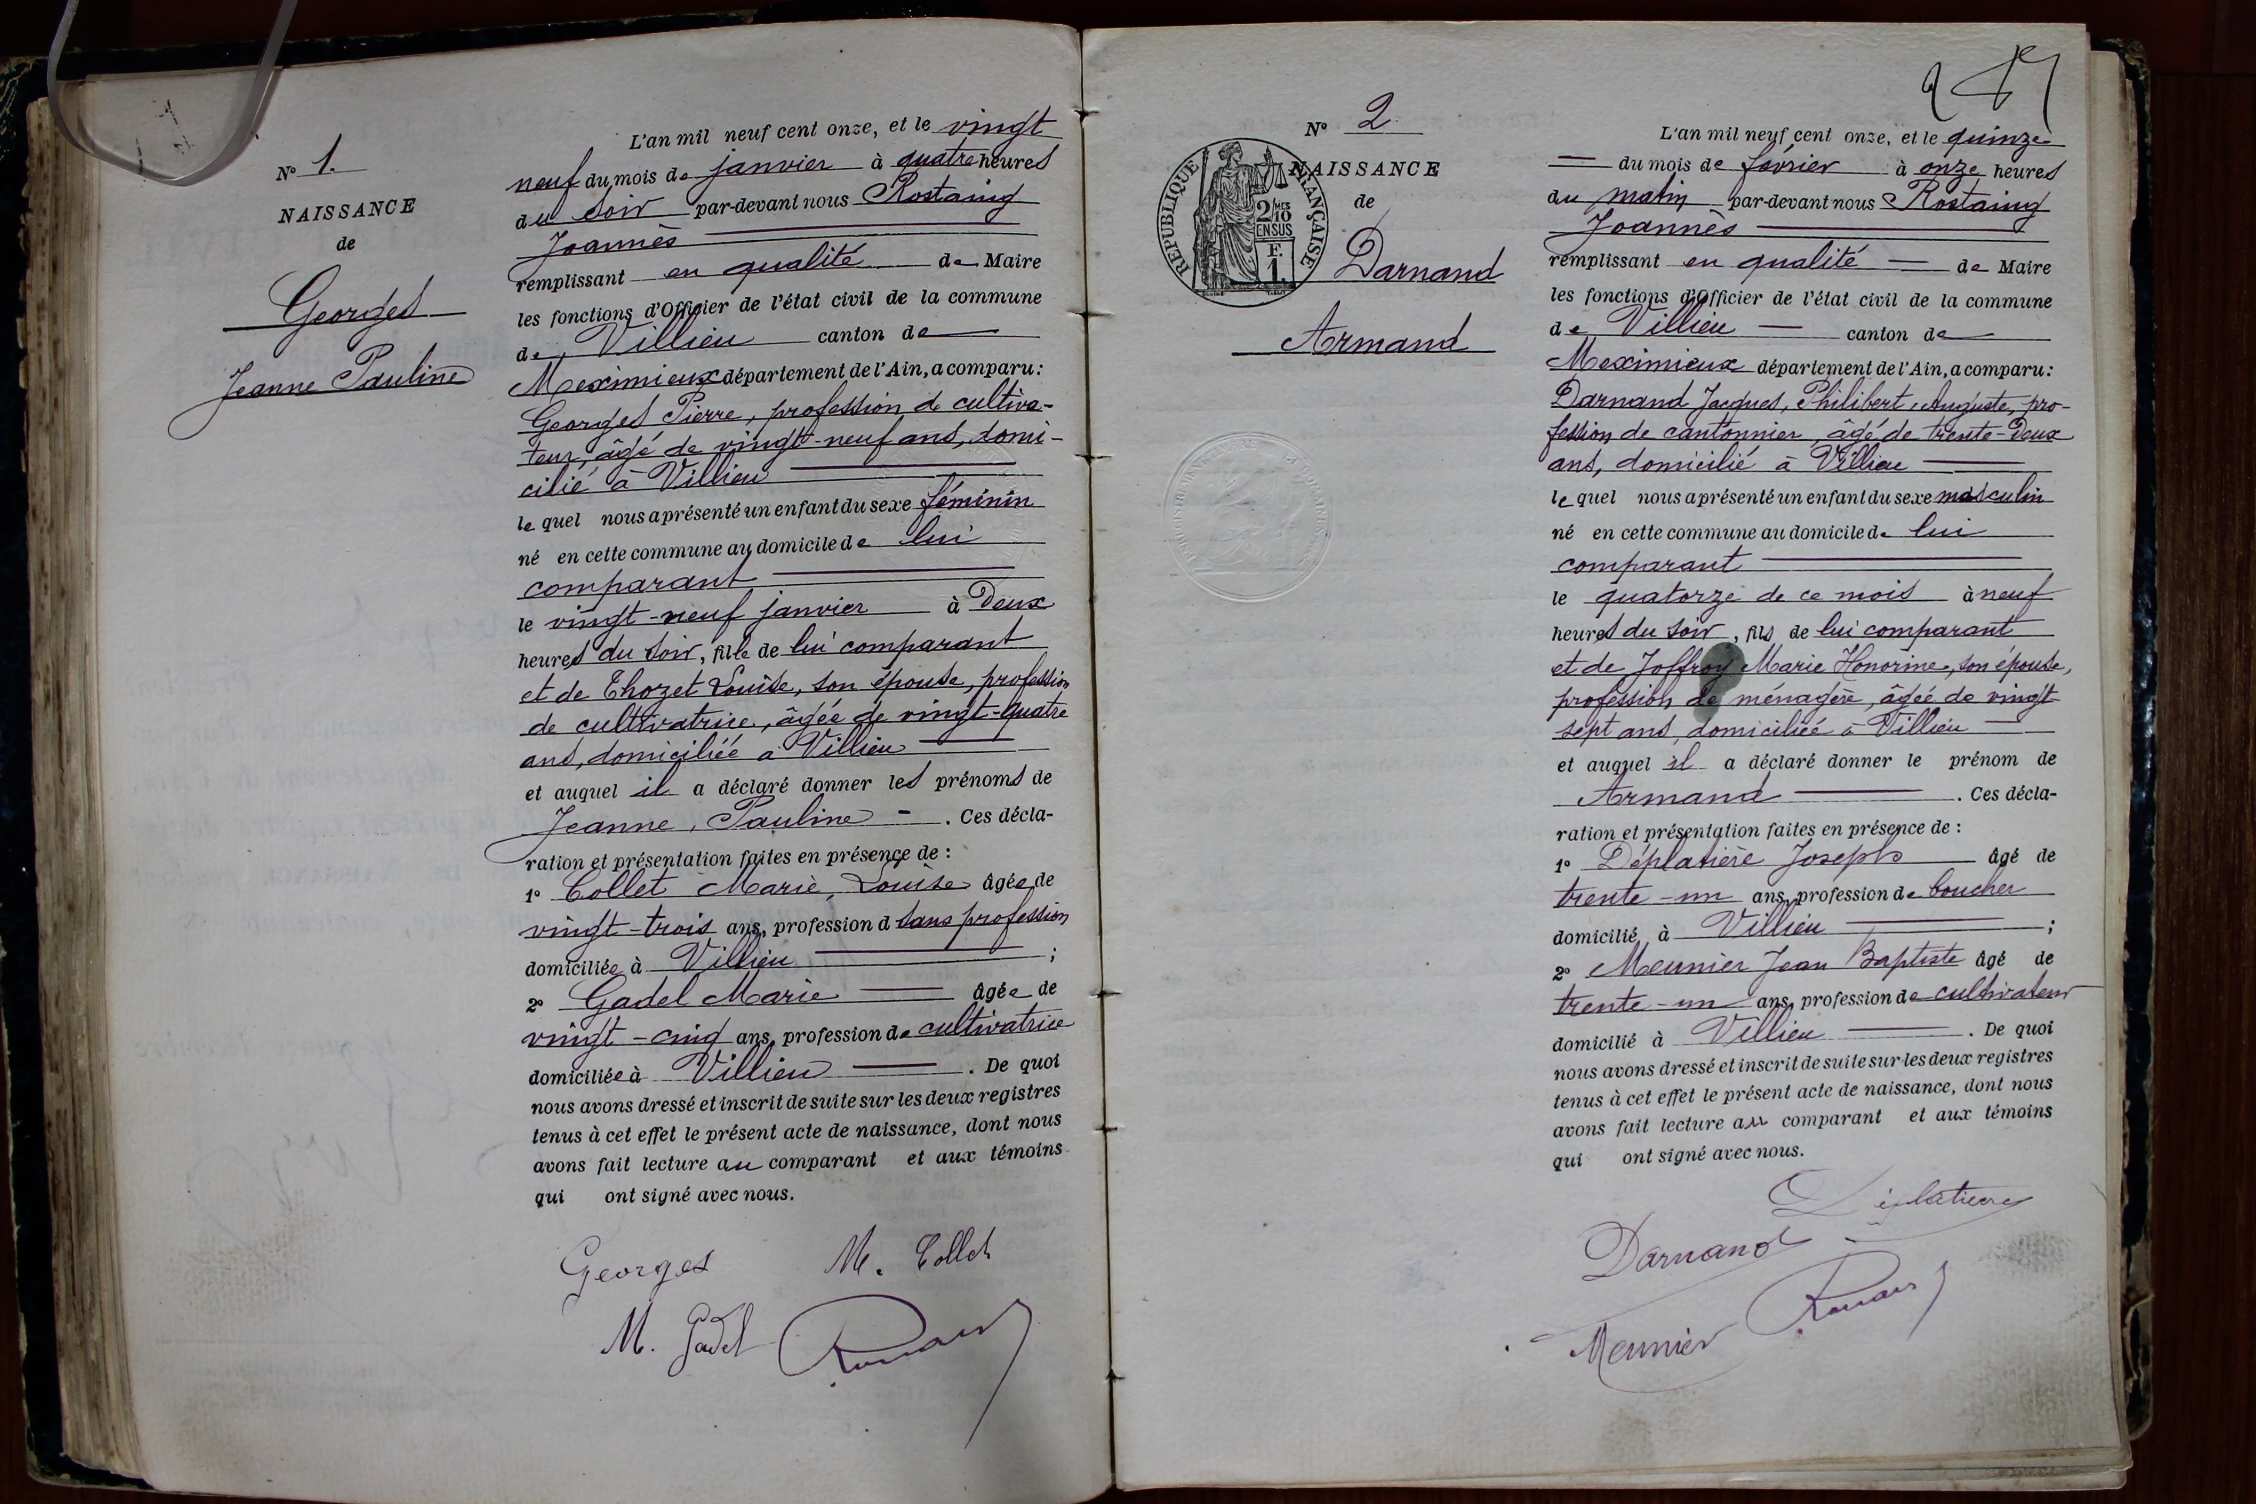 N° 1.
NAISSANCE
de
Georges
Jeanne Pauline
L'an mil neuf cent onze, et le vingt
neuf du mois de janvier à quatre heures
du soir par-devant nous Rostaing
Joannès
remplissant en qualité de Maire
les fonctions d'Officier de l'état civil de la commune
de Villieu canton de
Meximieux département de l'Ain, a comparu:
Georges Pierre, profession de cultiva-
teur, âgé de vingt-neuf ans, domi-
cilié à Villieu
le quel nous a présenté un enfant du sexe féminin
né en cette commune au domicile de lui
comparant
le vingt-neuf janvier à Deux
heures du soir, fille de lui comparant
et de Thozet Louise, son épouse, profession
de cultivatrice, âgée de vingt-quatre
ans, domiciliée à Villieu
et auquel il a déclaré donner les prénoms de
Jeanne, Pauline - . Ces décla-
ration et présentation faites en présence de :
1° Collet Marie Louise âgée de
vingt-trois ans, profession d sans profession
domiciliée à Villieu ;
2° Gadel Marie âgée de
vingt-cinq ans, profession de cultivatrice
domiciliée à Villieu . De quoi
nous avons dressé et inscrit de suite sur les deux registres
tenus à cet effet le présent acte de naissance, dont nous
avons fait lecture au comparant et aux témoins
qui ont signé avec nous.
Georges M. Collet
M. Gadel
N° 2
NAISSANCE
de
Darnand
Armand
RÉPUBLIQUE FRANÇAISE
2/10 MES
EN SUS
F.
1.
L'an mil neuf cent onze, et le quinze
— du mois de février à onze heures
du matin par-devant nous Rostaing
Joannès
remplissant en qualité — de Maire
les fonctions d'Officier de l'état civil de la commune
de Villieu — canton de
Meximieux département de l'Ain, a comparu:
Darnand Jacques, Philibert, Auguste, pro-
fession de cantonnier, âgé de trente-deux
ans, domicilié à Villieu
le quel nous a présenté un enfant du sexe masculin
né en cette commune au domicile de lui
comparant
le quatorze de ce mois à neuf
heures du soir, fils de lui comparant
et de Joffroy Marie Honorine, son épouse,
profession de ménagère, âgée de vingt
sept ans, domiciliée à Villieu
et auquel il a déclaré donner le prénom de
Armand . Ces décla-
ration et présentation faites en présence de :
1° Déplatière Joseph âgé de
trente-un ans, profession de boucher
domicilié à Villieu ;
2° Meunier Jean Baptiste âgé de
trente-un ans, profession de cultivateur
domicilié à Villieu . De quoi
nous avons dressé et inscrit de suite sur les deux registres
tenus à cet effet le présent acte de naissance, dont nous
avons fait lecture au comparant et aux témoins
qui ont signé avec nous.
Déplatière
Darnand
Meunier